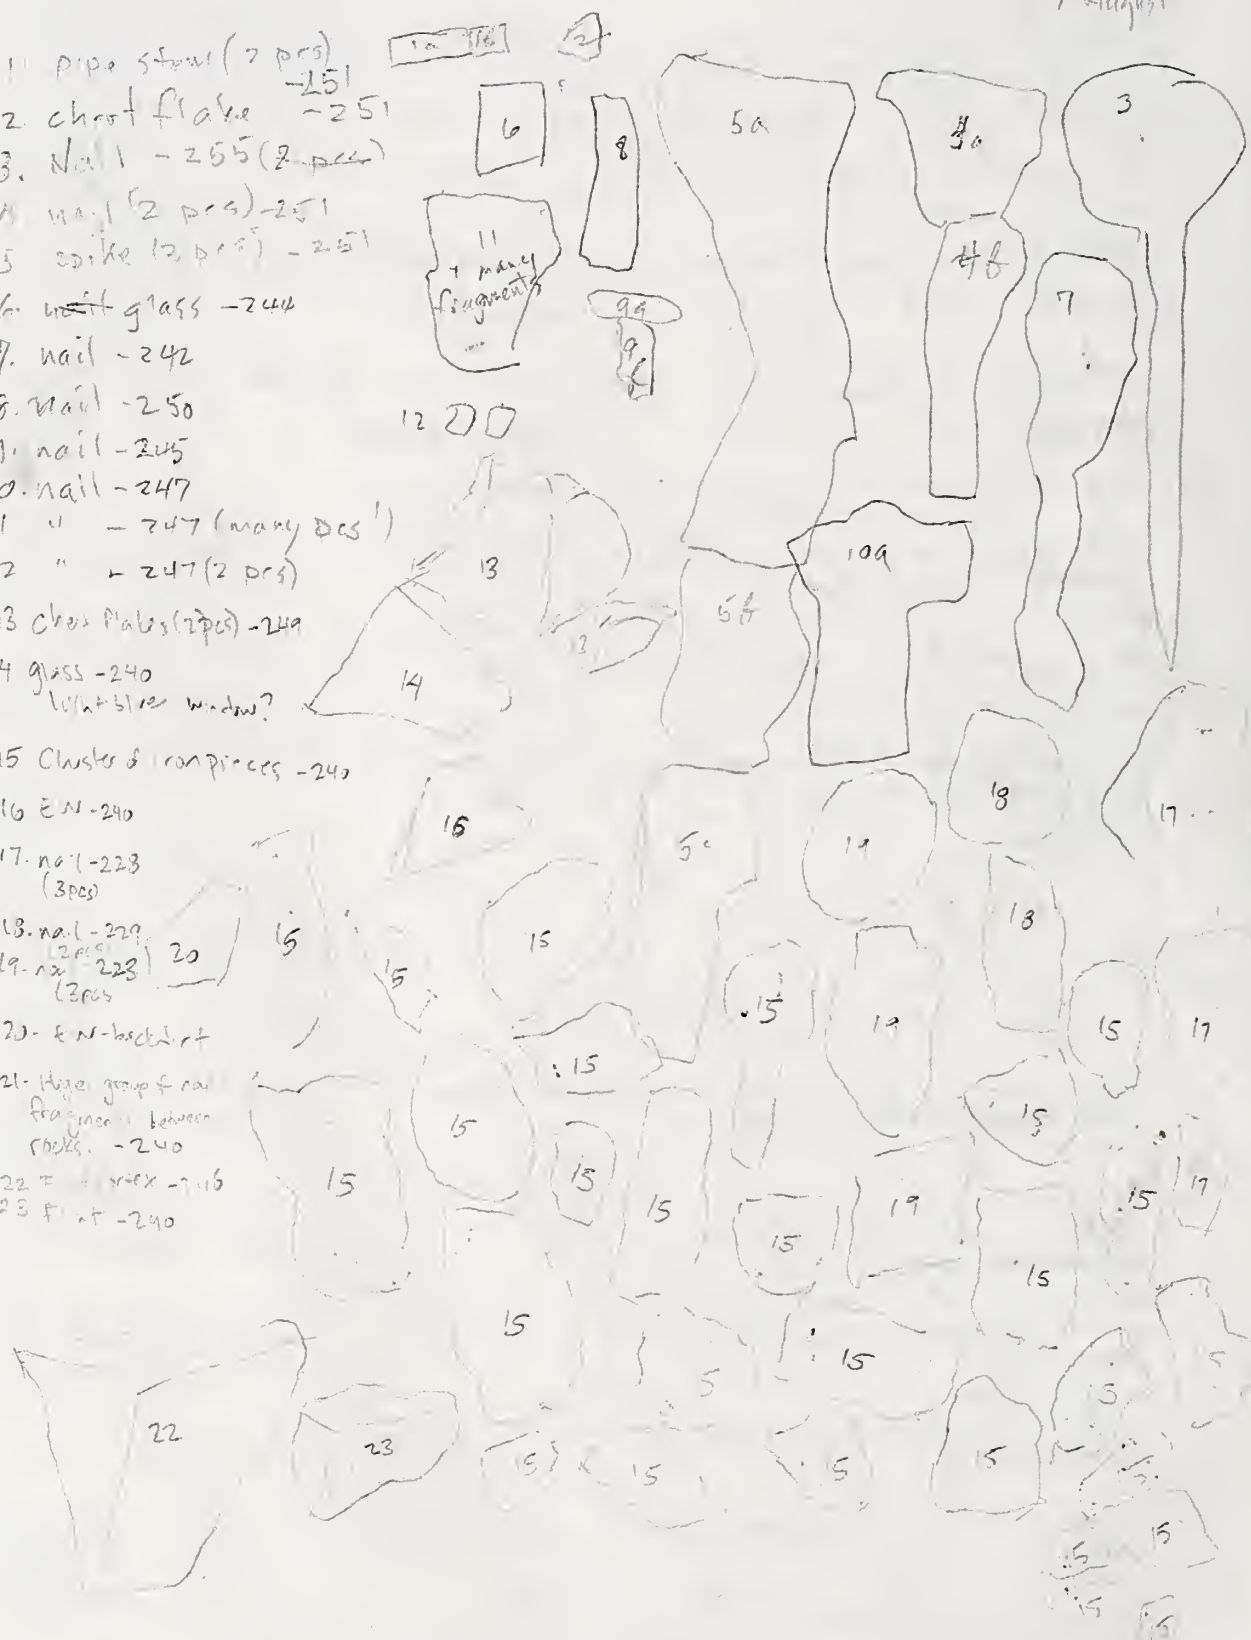 7 August
1 pipe stem (2 pcs)
-251
2. chert flake -251
3. Nail -255 (2 pcs)
nail (2 pcs) -251
5 spike (2 pcs) -251
6. glass -244
7. nail -242
8. nail -250
9. nail -245
0. nail -247
1 " - 247 (many pcs)
2 " - 247 (2 pcs)
3 flakes (2pcs) -249
4 glass -240
light blue window?
15 Cluster of iron pieces -240
16 EN -240
17. nail -223
(3pcs)
18. nail -229
(2pcs)
19. nail -223
(3pcs
20- EN-backdirt
21- group of nail
fragments between
rocks. -240
22
23 -240
1a 1b
2
6
8
5a
3
11
+ many
fragments
4b
7
9a
9b
12
13
10a
5b
13
14
18
17
16
5c
19
15
15
18
20
15
15
19
15
17
15
15
15
15
15
15
15
19
15
17
15
15
15
15
5
22
23
15
15
15
15
15
15
15
15